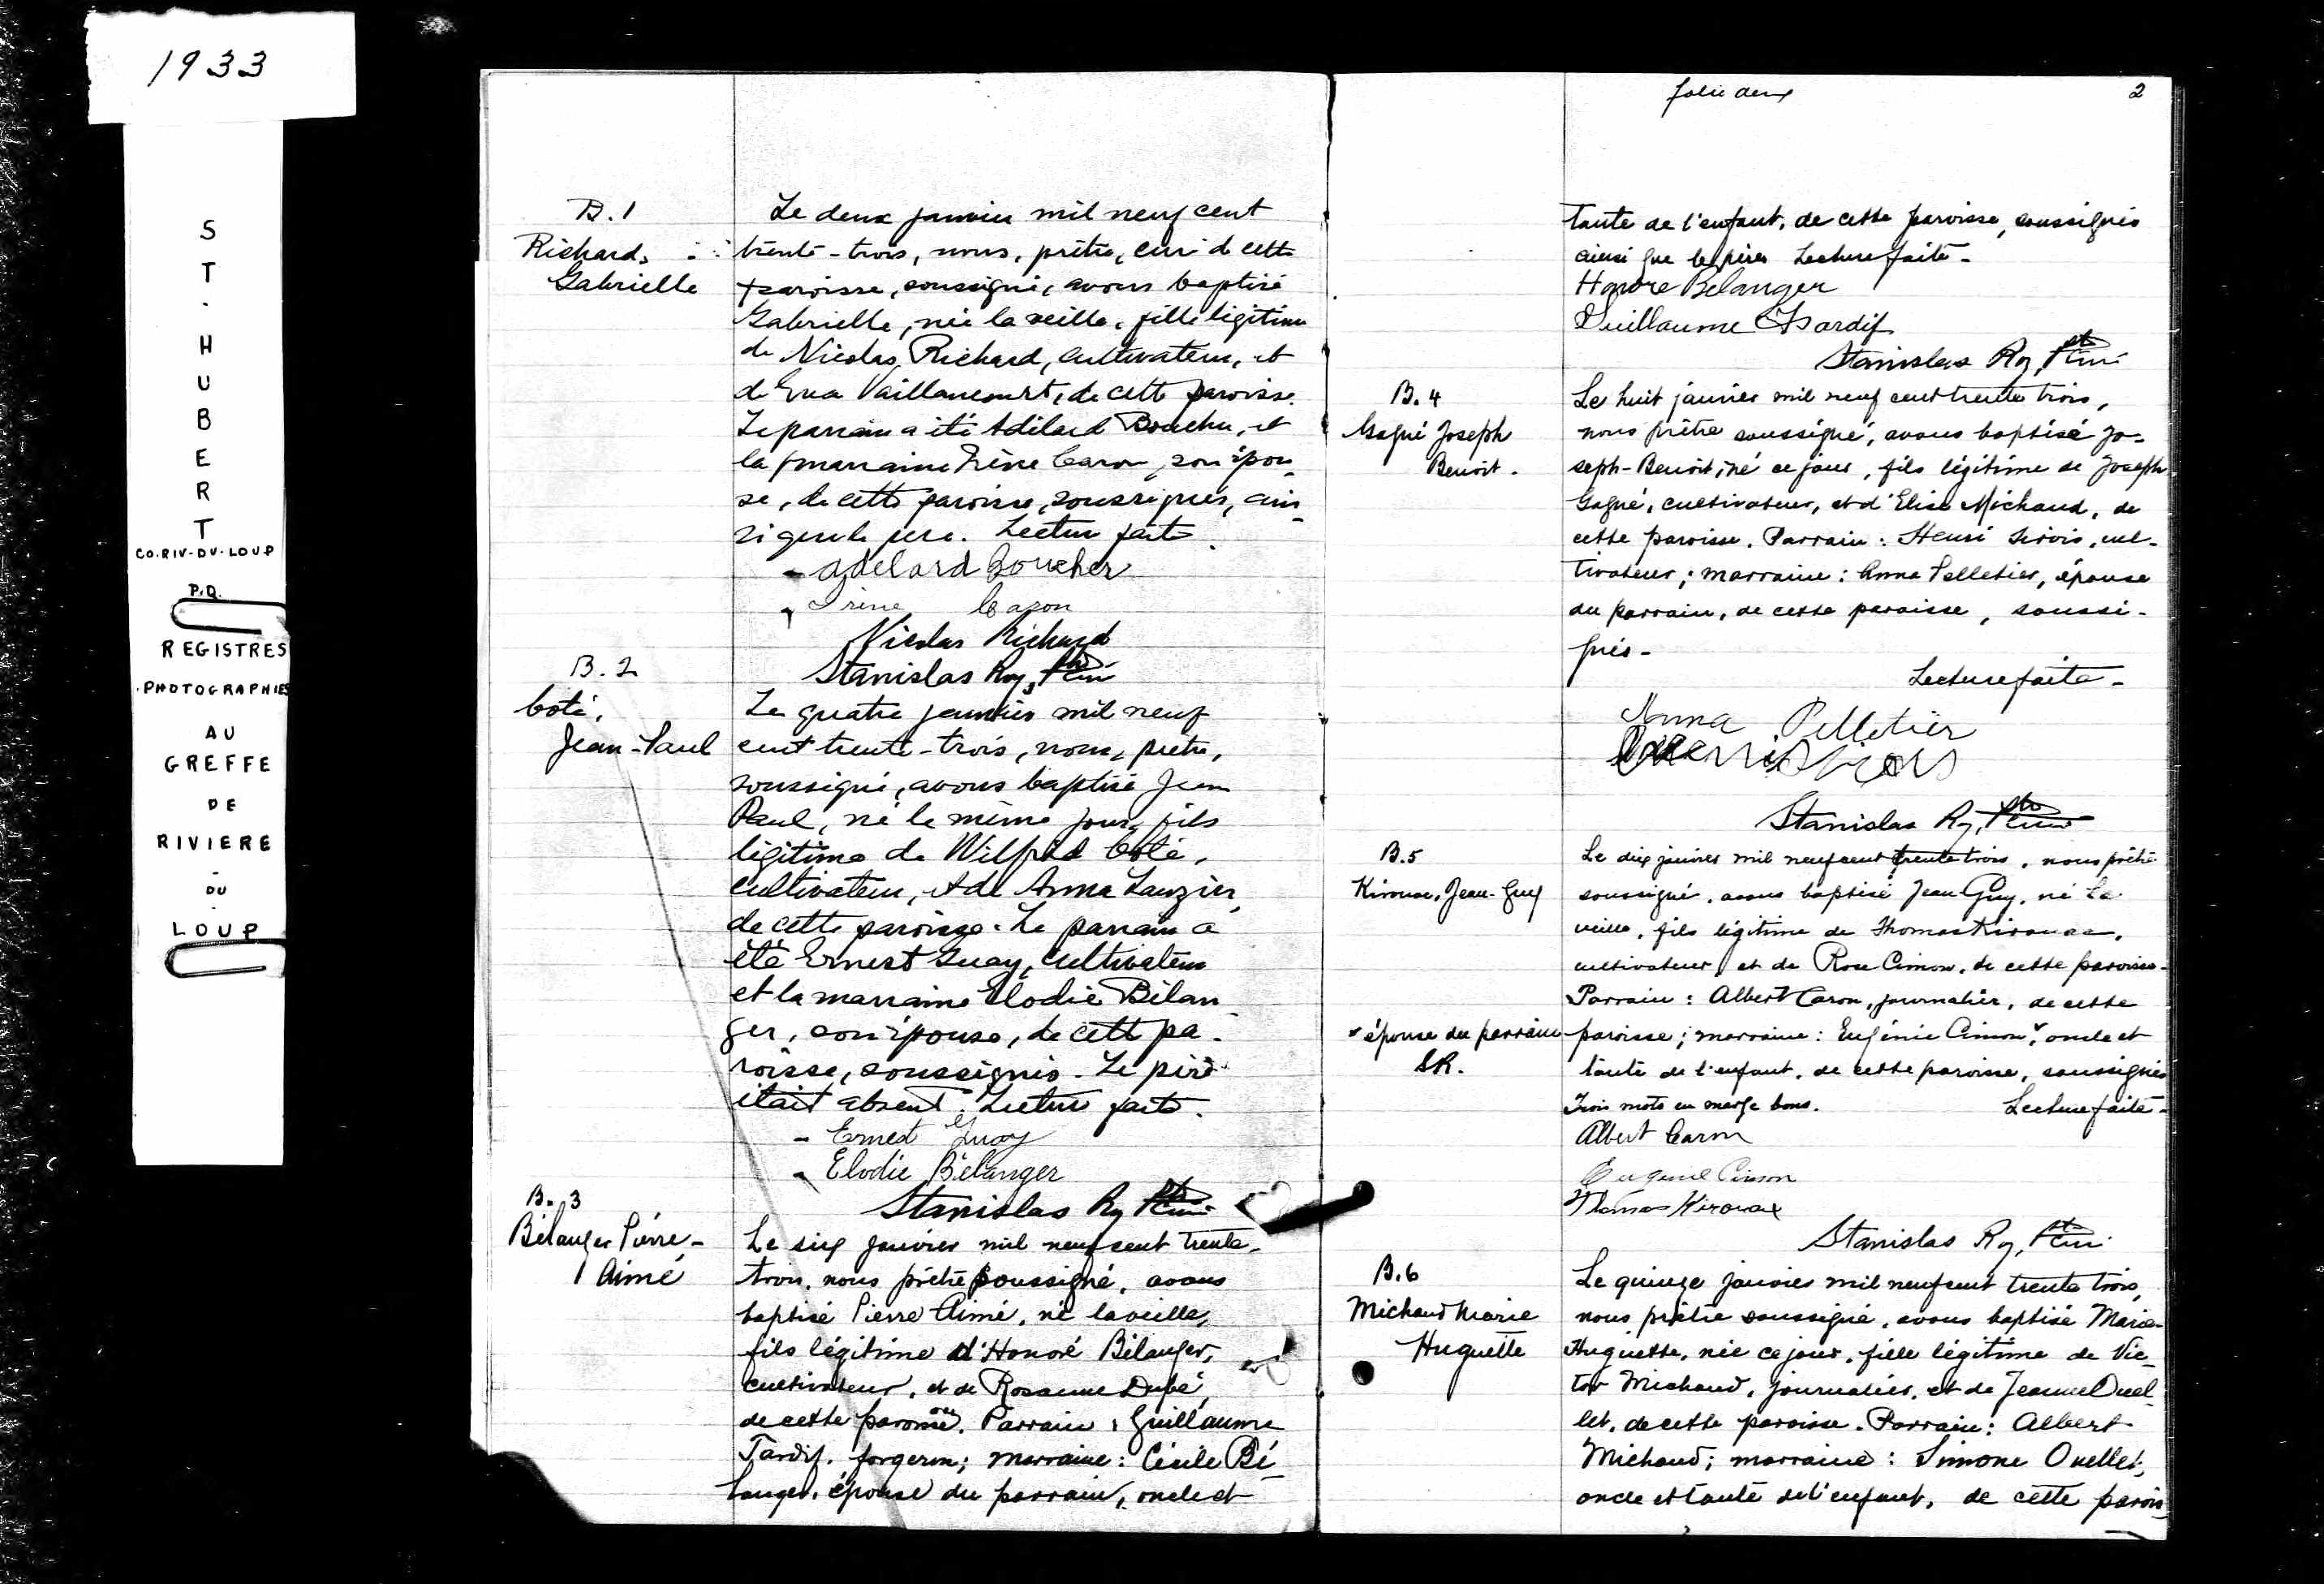 1933
ST. HUBERT
CO. RIV-DU-LOUP
P.Q.
REGISTRES
PHOTOGRAPHIES
AU
GREFFE
DE
RIVIERE
-
DU
-
LOUP
B.1
Richard,
Gabrielle
Le deux janvier mil neuf cent
trente-trois, nous, prêtre, curé de cette
paroisse, soussigné, avons baptisé
Gabrielle, née la veille, fille légitime
de Nicolas Richard, cultivateur, et
de Eva Vaillancourt, de cette paroisse.
Le parrain a été Adélard Boucher, et
la marraine Irène Caron, son épou-
se, de cette paroisse, soussignés, ain-
si que le père. Lecture faite.
- Adelard Boucher
Irène Caron
Nicolas Richard
Stanislas Roy, Ptre Curé
B.2
Coté,
Jean-Paul
Le quatre janvier mil neuf
cent trente-trois, nous, prêtre,
soussigné, avons baptisé Jean
Paul, né le même jour, fils
légitime de Wilfrid Coté,
cultivateur, et de Anna Lauzier,
de cette paroisse. Le parrain a
été Ernest Guay, cultivateur
et la marraine Elodie Bélan-
ger, son épouse, de cette pa-
roisse, soussignés. Le père
était absent. Lecture faite.
- Ernest Guay
- Elodie Bélanger
Stanislas Roy Ptre Curé
B. 3
Bélanger Pierre-
Aimé
Le six janvier mil neuf cent trente-
trois, nous prêtre soussigné, avons
baptisé Pierre Aimé, né la veille,
fils légitime d'Honoré Bélanger,
cultivateur, et de Rosanne Dubé,
de cette paroisse. Parrain: Guillaume
Tardif, forgeron; marraine: Cécile Bé-
langer, épouse du parrain, oncle et
folio deux
2
tante de l'enfant, de cette paroisse, soussignés
ainsi que le père. Lecture faite -
Honore Belanger
Guillaume Tardif
Stanislas Roy, Ptre Curé
B. 4
Gagné Joseph
Benoit.
Le huit janvier mil neuf cent trente trois,
nous prêtre soussigné, avons baptisé Jo-
seph-Benoit, né ce jour, fils légitime de Joseph
Gagné, cultivateur, et d'Elise Michaud, de
cette paroisse. Parrain: Henri Sirois, cul-
tivateur; marraine: Anna Pelletier, épouse
du parrain, de cette paroisse, soussi-
gnés -
Lecture faite -
Anna Pelletier
Stanislas Roy, Ptre Curé
B.5
Kirouac, Jean-Guy
Le dix janvier mil neuf cent trente trois, nous prêtre
soussigné, avons baptisé Jean Guy, né la
veille, fils légitime de Thomas Kirouac,
cultivateur, et de Rose Cimon, de cette paroisse.
Parrain: Albert Caron, journalier, de cette
paroisse; marraine: Eugénie Cimon, v oncle et
v épouse du parrain
S.R.
tante de l'enfant, de cette paroisse, soussignés
Trois mots en marge bons. Lecture faite -
Albert Caron
Eugenie Cimon
Thomas Kirouac
Stanislas Roy, Ptre Curé
B.6
Michaud Marie
Huguette
Le quinze janvier mil neuf cent trente trois,
nous prêtre soussigné, avons baptisé Marie-
Huguette, née ce jour, fille légitime de Vic-
tor Michaud, journalier, et de Jeanne Ouel-
let, de cette paroisse. Parrain: Albert
Michaud; marraine: Simone Ouellet,
oncle et tante de l'enfant, de cette parois-